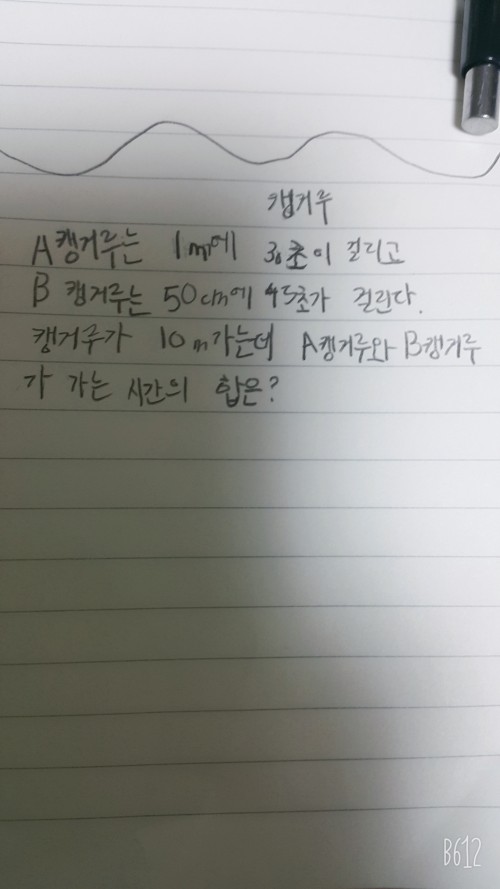 캥거루
A캥거루는 1m에 30초이 걸리고
B 캥거루는 50cm에 45초가 걸린다.
캥거루가 10m가는데 A캥거루와 B캥거루
가 가는 시간의 합은?
B612